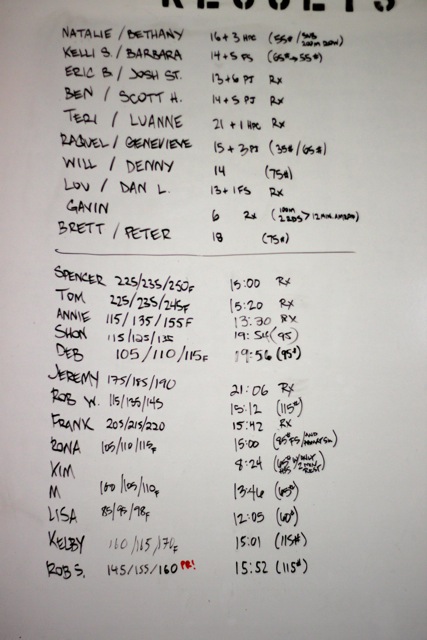 RESULTS
NATALIE / BETHANY 16 + 3 HPC (55# / SUB 200M ROW)
KELLI S. / BARBARA 14 + 5 FS (65#→55#)
ERIC B / JOSH ST. 13 + 6 PJ Rx
BEN / SCOTT H. 14 + 5 PJ Rx
TERI / LUANNE 21 + 1 HPC Rx
RAQUEL / GENEVIEVE 15 + 3 PJ (35# / 65#)
WILL / DENNY 14 (75#)
LOU / DAN L. 13 + 1 FS Rx
GAVIN 6 Rx (100M 2 RDS > 12 MIN. AMRAP)
BRETT / PETER 18 (75#)
SPENCER 225/235/250F 15:00 Rx
TOM 225/235/245F 15:20 Rx
ANNIE 115/135/155F 13:30 Rx
SHON 115/125/135 19:54 (95)
DEB 105/110/115F 19:56 (95#)
JEREMY 175/185/190 21:06 Rx
ROB W. 115/135/145 15:12 (115#)
FRANK 205/215/220 15:42 Rx
RONA 105/110/115F 15:00 (85# FS /
KIM 8:24 (65#
M 100/105/110F 13:46 (65#)
LISA 85/95/98F 12:05 (60#)
KELBY 160/165/170F 15:01 (115#)
ROB S. 145/155/160 PR! 15:52 (115#)